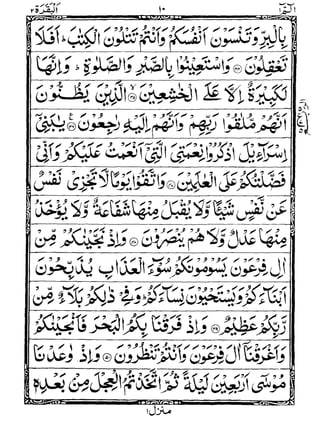 الٓمّٓ ١ ١٠ البقرة ٢
بِالْبِرِّ وَتَنْسَوْنَ اَنْفُسَكُمْ وَاَنْتُمْ تَتْلُوْنَ الْكِتٰبَ ؕ اَفَلَا
تَعْقِلُوْنَ ۝۴۴ وَاسْتَعِيْنُوْا بِالصَّبْرِ وَالصَّلٰوةِ ؕ وَاِنَّهَا
لَكَبِيْرَةٌ اِلَّا عَلَى الْخٰشِعِيْنَ ۝۴۵ الَّذِيْنَ يَظُنُّوْنَ
اَنَّهُمْ مُّلٰقُوْا رَبِّهِمْ وَاَنَّهُمْ اِلَيْهِ رٰجِعُوْنَ ۝۴۶ يٰبَنِيْٓ
اِسْرَآءِيْلَ اذْكُرُوْا نِعْمَتِيَ الَّتِيْٓ اَنْعَمْتُ عَلَيْكُمْ وَاَنِّيْ
فَضَّلْتُكُمْ عَلَى الْعٰلَمِيْنَ ۝۴۷ وَاتَّقُوْا يَوْمًا لَّا تَجْزِيْ نَفْسٌ
عَنْ نَّفْسٍ شَيْـًٔا وَّلَا يُقْبَلُ مِنْهَا شَفَاعَةٌ وَّلَا يُؤْخَذُ
مِنْهَا عَدْلٌ وَّلَا هُمْ يُنْصَرُوْنَ ۝۴۸ وَاِذْ نَجَّيْنٰكُمْ مِّنْ
اٰلِ فِرْعَوْنَ يَسُوْمُوْنَكُمْ سُوْٓءَ الْعَذَابِ يُذَبِّحُوْنَ
اَبْنَآءَكُمْ وَيَسْتَحْيُوْنَ نِسَآءَكُمْ ؕ وَفِيْ ذٰلِكُمْ بَلَآءٌ مِّنْ
رَّبِّكُمْ عَظِيْمٌ ۝۴۹ وَاِذْ فَرَقْنَا بِكُمُ الْبَحْرَ فَاَنْجَيْنٰكُمْ
وَاَغْرَقْنَآ اٰلَ فِرْعَوْنَ وَاَنْتُمْ تَنْظُرُوْنَ ۝۵۰ وَاِذْ وٰعَدْنَا
مُوْسٰٓى اَرْبَعِيْنَ لَيْلَةً ثُمَّ اتَّخَذْتُمُ الْعِجْلَ مِنْۢ بَعْدِهٖ
منزل ١